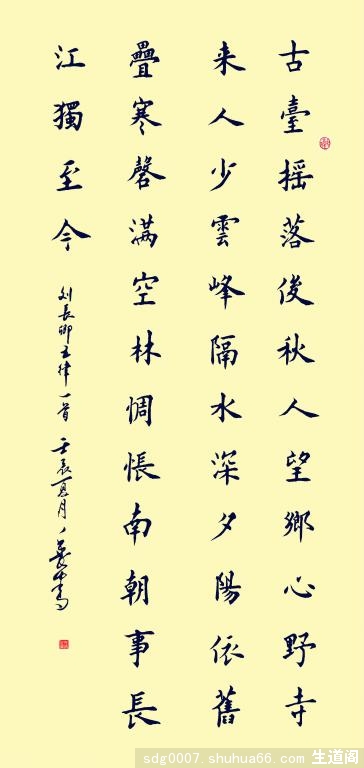 古臺摇落後秋人望鄉心野寺
来人少雲峰隔水深夕陽依舊
疊寒磬满空林惆悵南朝事長
江獨至今
刘長卿五律一首 壬辰夏月 書
sdg0007.shuhua66.com 生道阁